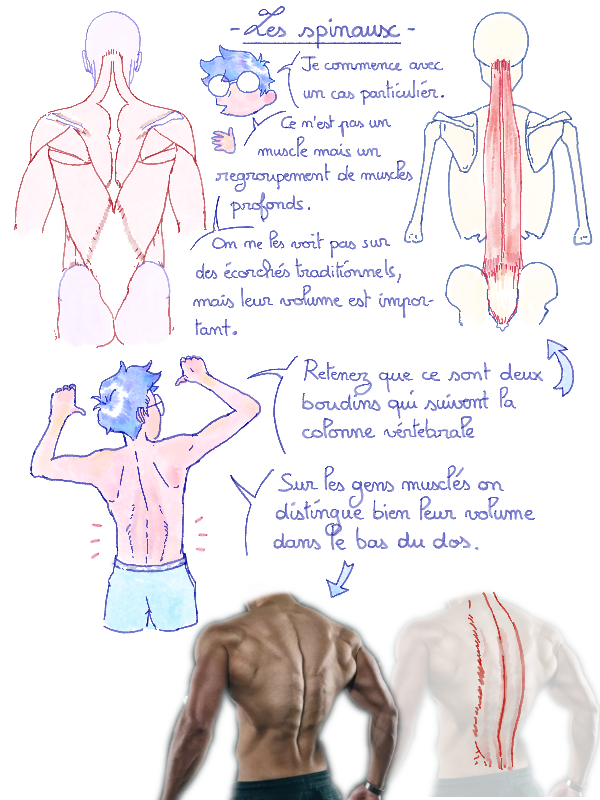 - Les spinaux -
Je commence avec
un cas particulier.
Ce n'est pas un
muscle mais un
regroupement de muscles
profonds.
On ne les voit pas sur
des écorchés traditionnels,
mais leur volume est impor-
tant.
Retenez que ce sont deux
boudins qui suivent la
colonne vértébrale
Sur les gens musclés on
distingue bien leur volume
dans le bas du dos.